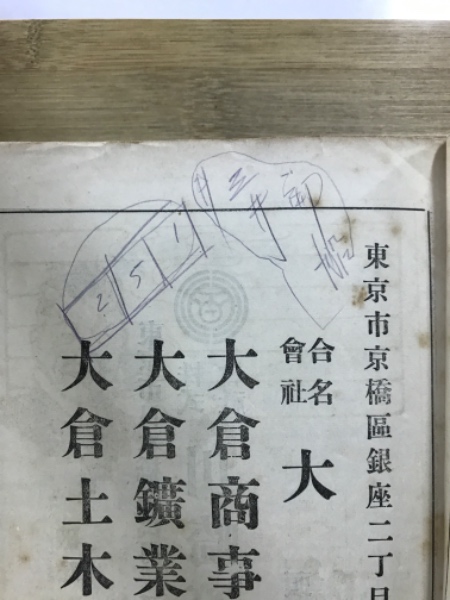 東京市京橋區銀座二丁目
合名會社 大
大倉商事
大倉鑛業
大倉土木
三井
2 5 1